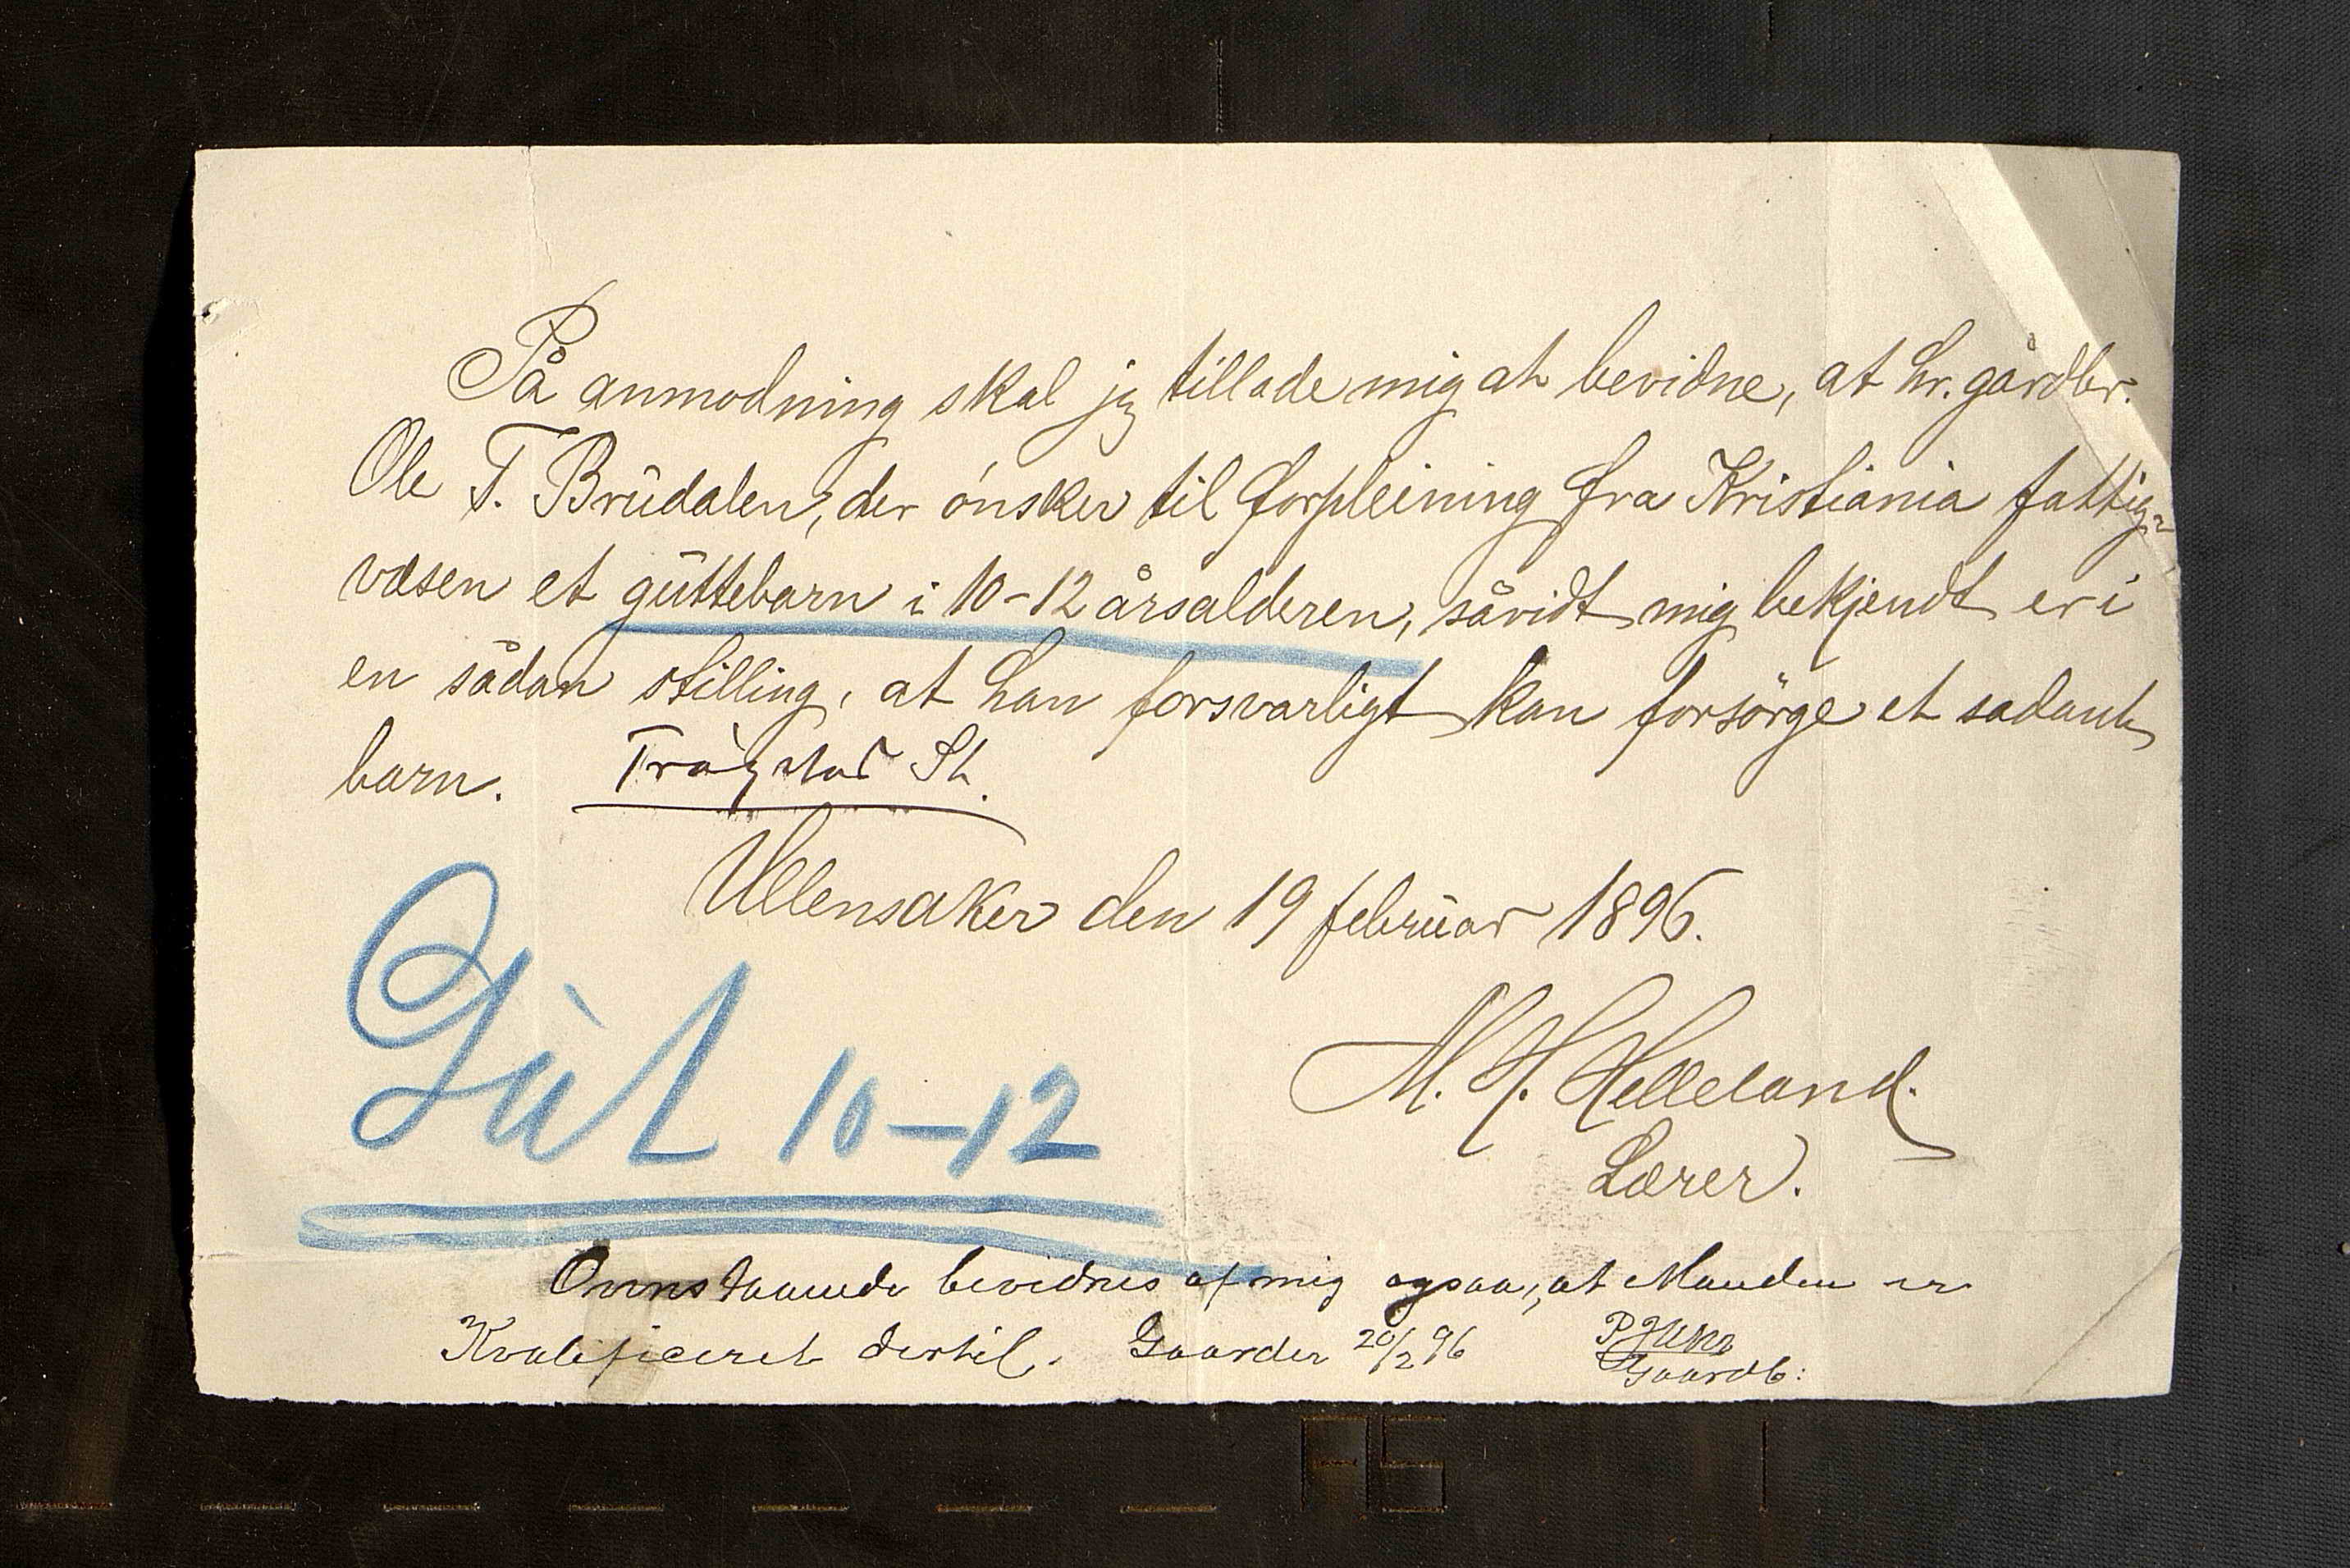 På anmodning skal jeg tillade mig at bevidne, at hr. gårdbr.
Ole T. Brudalen, der ønsker til forpleining fra Kristiania fattig-
væsen et guttebarn i 10-12 årsalderen, såvidt mig bekjendt er i
en sådan stilling, at han forsvarligt kan forsørge et sadant
barn. Trøgstad St.
Ullensaker den 19 februar 1896.
Gut 10-12
M. H. Helleland.
Lærer.
Ovenstaaende bevidnes af mig ogsaa, at Manden er
Kvalificeret dertil. Gaarder 20/2 96
Gaardb: